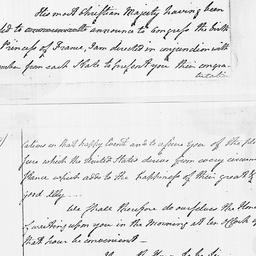 His most Christian Majesty having been
ed to announce to Congress the birth
Princess of France, I am directed in conjunction with
member from each State to present you their congra-
tulati
lations on that happy Event and to assure you of the plea
sure which the United States derive from every circum
stance which adds to the happiness of their great &
good Ally....
We shall therefore do ourselves the Hono
of waiting upon you in the Morning at ten oClock if
that hour be convenient —